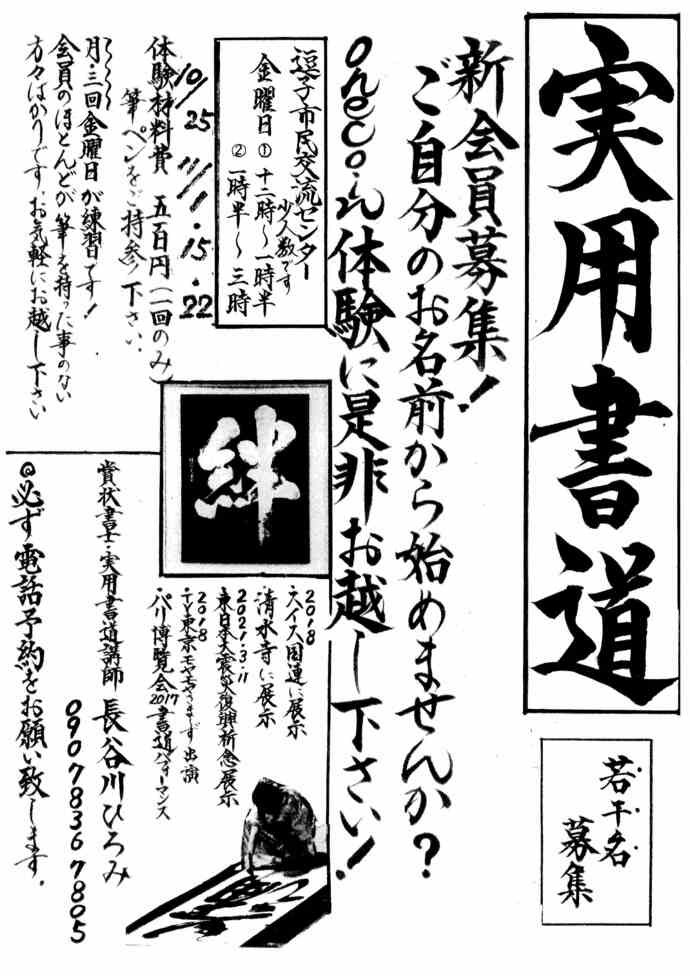 実用書道
若干名
募集
新会員募集！
ご自分のお名前から始めませんか？
onecoin体験に是非お越し下さい！
逗子市民交流センター
少人数です
金曜日①十二時～一時半
②一時半～三時
10/25 11/1・15・22
体験材料費 五百円（一回のみ）
筆ペンをご持参下さい。
月・三回金曜日が練習です！
会員のほとんどが筆を持った事のない
方々ばかりです。お気軽にお越し下さい
絆
2018
スイス国連に展示
清水寺に展示
2021.3.11
東日本大震災復興祈念展示
2018
TV東京モヤモヤさまぁず出演
パリ博覧会2017書道パフォーマンス
賞状書士・実用書道講師 長谷川ひろみ
090 7836 7805
◎必ず電話予約をお願い致します。